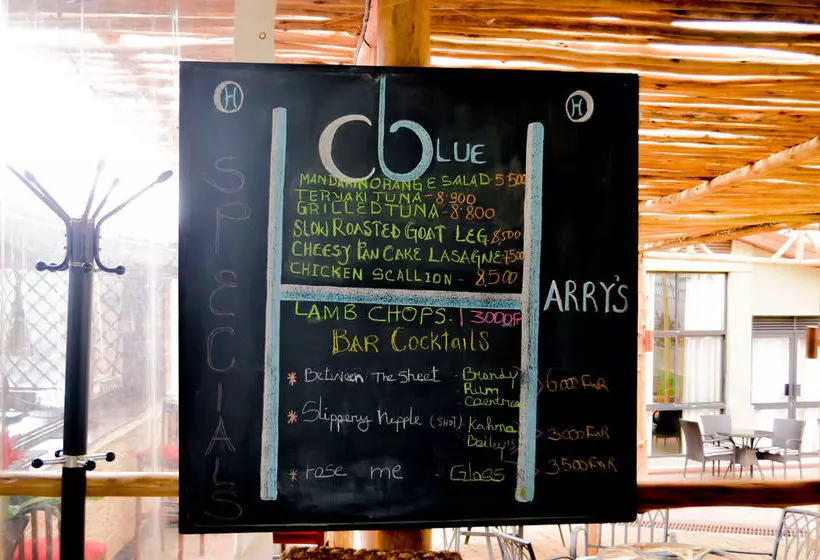 H
H
SPECIALS
cbLUE
MANDARIN ORANGE SALAD - 5500
TERYAKI TUNA - 8'900
GRILLED TUNA - 8'800
SLOW ROASTED GOAT LEG. 8,500
CHEESY PAN CAKE LASAGNE 7500
CHICKEN SCALLION - 8,500
HARRY'S
LAMB CHOPS - 13000F
BAR Cocktails
* Between The Sheet - Brandy
Rum
Caentreu
6000 FRW
* Slippery Nipple (SHOT) - Kahna
Bailey's
3000 FRW
* rose me - Glass 3500 FRW